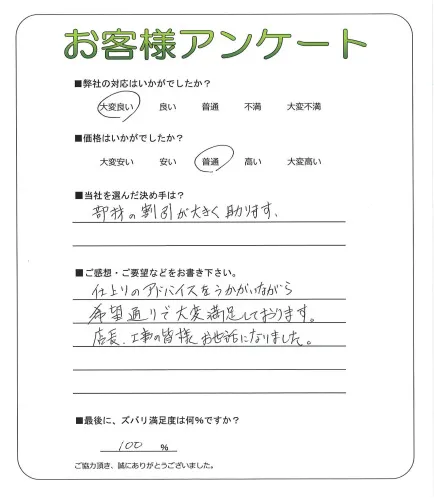 お客様アンケート
■弊社の対応はいかがでしたか？
大変良い 良い 普通 不満 大変不満
■価格はいかがでしたか？
大変安い 安い 普通 高い 大変高い
■当社を選んだ決め手は？
部材の割引が大きく助ります、
■ご感想・ご要望などをお書き下さい。
仕上りのアドバイスをうかがいながら
希望通りで大変満足しております。
店長、工事の皆様お世話になりました。
■最後に、ズバリ満足度は何％ですか？
100 %
ご協力頂き、誠にありがとうございました。